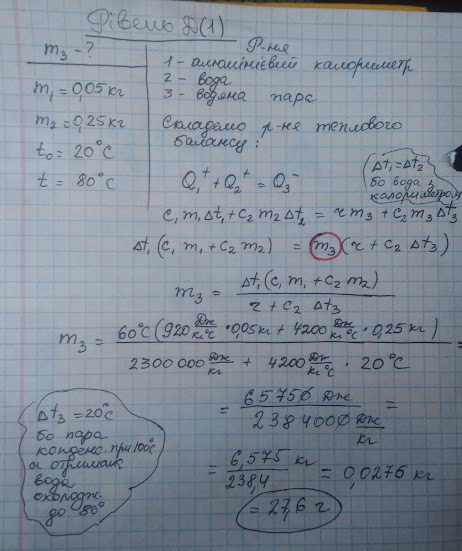 Рівень Д(1)
m₃ - ?
m₁ = 0,05 кг
m₂ = 0,25 кг
t₀ = 20°C
t = 80°C
Р-ня
1 - алюмінієвий калориметр
2 - вода
3 - водяна пара
Складемо р-ня теплового
балансу:
Q₁⁺ + Q₂⁺ = Q₃⁻
Δt₁ = Δt₂
бо вода з
калориметром
c₁ m₁ Δt₁ + c₂ m₂ Δt₂ = r m₃ + c₂ m₃ Δt₃
Δt₁ (c₁ m₁ + c₂ m₂) = m₃ (r + c₂ Δt₃)
m₃ = Δt₁ (c₁ m₁ + c₂ m₂) / r + c₂ Δt₃
m₃ = 60°C (920 Дж/кг°C · 0,05 кг + 4200 Дж/кг°C · 0,25 / 2300 000 Дж/кг + 4200 Дж/кг°C · 20°C =
= 65750 Дж / 2384000 Дж/кг =
= 6,575 / 238,4 кг = 0,0276 кг
= 27,6 г
Δt₃ = 20°C
бо пара
конденс. при 100°C
а отримана
вода
охолодж.
до 80°